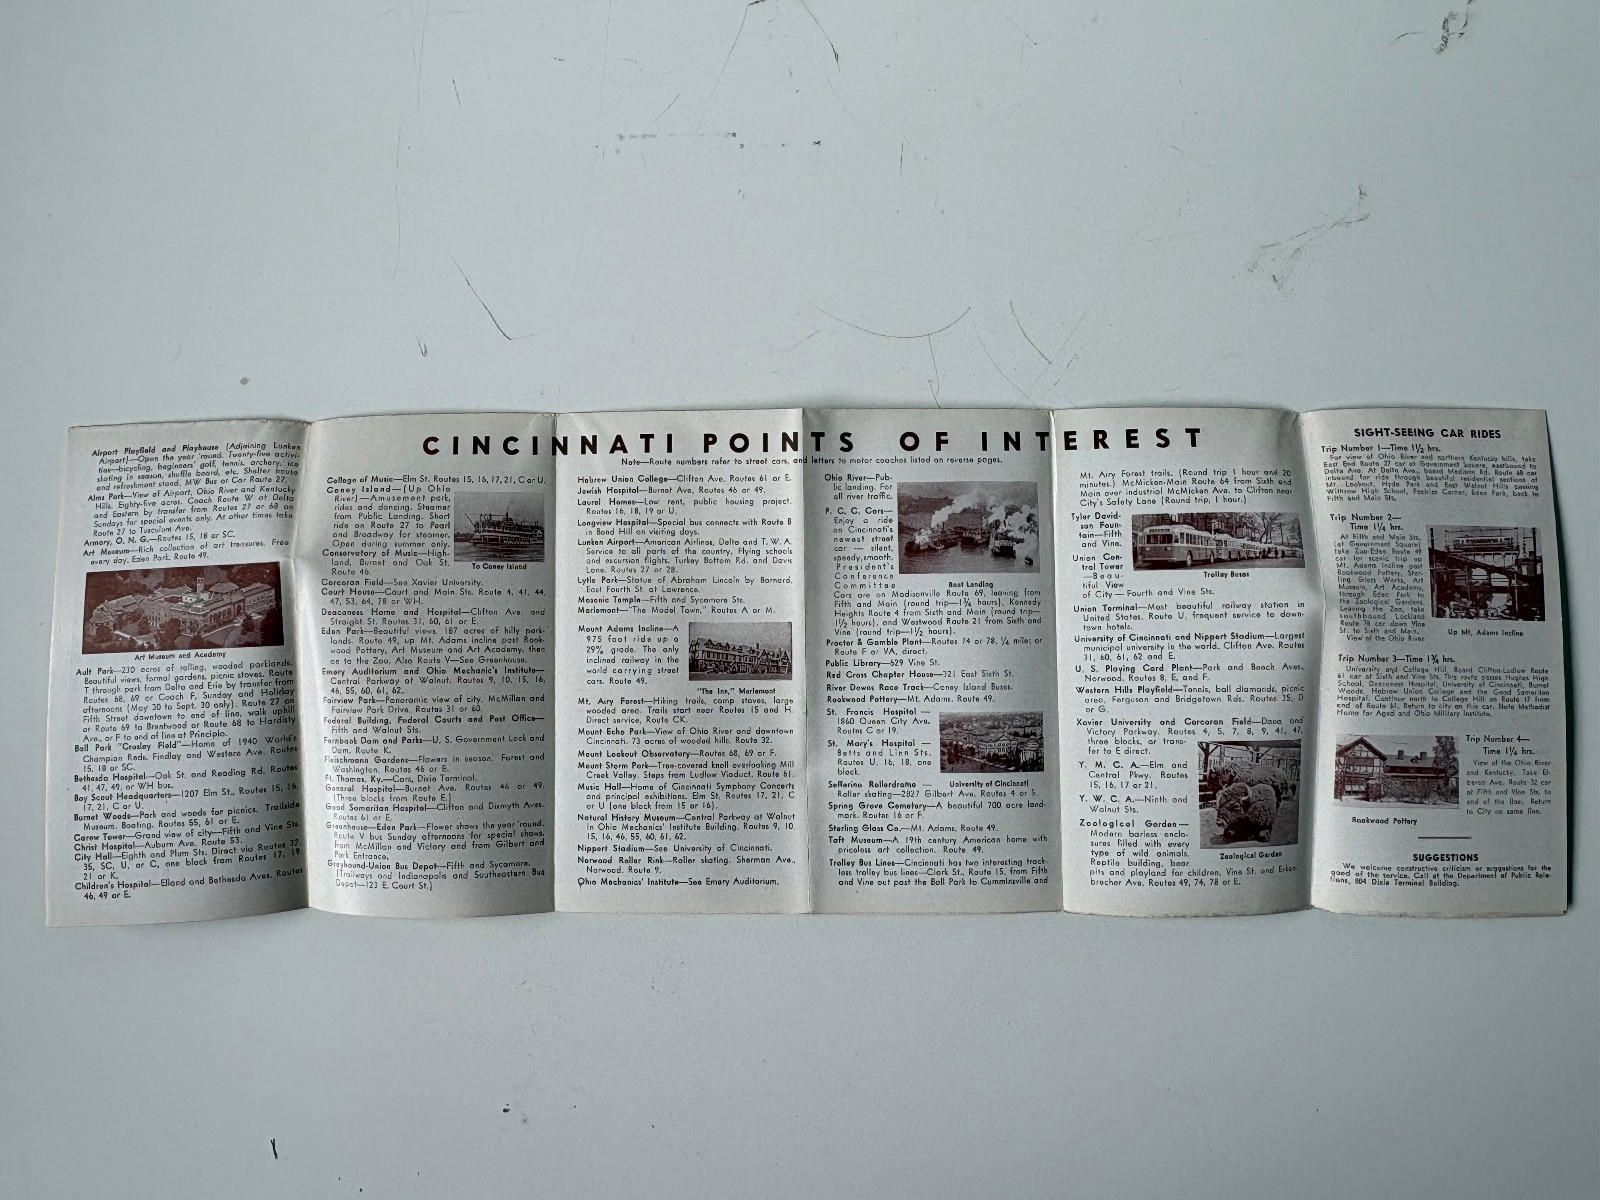 CINCINNATI POINTS OF INTEREST
Note—Route numbers refer to street cars, and letters to motor coaches listed on reverse pages.
Airport Playfield and Playhouse (Adjoining Lunken
Airport)—Open the year 'round. Twenty-five activi-
ties—bicycling, beginners' golf, tennis, archery, ice
skating in season, shuffle board, etc. Shelter house
and refreshment stand. MW Bus or Car Route 27.
Alms Park—View of Airport, Ohio River and Kentucky
Hills. Eighty-five acres. Coach Route W at Delta
and Eastern by transfer from Routes 27 or 68 on
Sundays for special events only. At other times take
Route 27 to Tusculum Ave.
Armory, O. N. G.—Routes 15, 18 or SC.
Art Museum—Rich collection of art treasures. Free
every day, Eden Park. Route 49.
Art Museum and Academy
Ault Park—230 acres of rolling, wooded parklands.
Beautiful views, formal gardens, picnic stoves. Route
T through park from Delta and Erie by transfer from
Routes 68, 69 or Coach F, Sunday and Holiday
afternoons (May 30 to Sept. 30 only). Route 27 on
Fifth Street downtown to end of line, walk uphill
or Route 69 to Brentwood or Route 68 to Hardisty
Ave., or F to end of line at Principio.
Ball Park "Crosley Field"—Home of 1940 World's
Champion Reds. Findlay and Western Ave. Routes
15, 18 or SC.
Bethesda Hospital—Oak St. and Reading Rd. Routes
41, 47, 49, or WH bus.
Boy Scout Headquarters—1207 Elm St., Routes 15, 16,
17, 21, C or U.
Burnet Woods—Park and woods for picnics. Trailside
Museum. Boating. Routes 55, 61 or E.
Carew Tower—Grand view of city—Fifth and Vine Sts.
Christ Hospital—Auburn Ave. Route 53.
City Hall—Eighth and Plum Sts. Direct via Routes 32,
35, SC, U, or C, one block from Routes 17, 19,
21 or K.
Children's Hospital—Elland and Bethesda Aves. Routes
46, 49 or E.
College of Music—Elm St. Routes 15, 16, 17, 21, C or U.
Coney Island—(Up Ohio
River)—Amusement park,
rides and dancing. Steamer
from Public Landing. Short
ride on Route 27 to Pearl
and Broadway for steamer.
Open during summer only.
Conservatory of Music—High-
land, Burnet and Oak St.
Route 46.
To Coney Island
Corcoran Field—See Xavier University.
Court House—Court and Main Sts. Route 4, 41, 44,
47, 53, 64, 78 or WH.
Deaconess Home and Hospital—Clifton Ave. and
Straight St. Routes 31, 60, 61 or E.
Eden Park—Beautiful views. 187 acres of hilly park-
lands. Route 49, up Mt. Adams incline past Rook-
wood Pottery, Art Museum and Art Academy, then
on to the Zoo. Also Route V—See Greenhouse.
Emery Auditorium and Ohio Mechanic's Institute—
Central Parkway at Walnut. Routes 9, 10, 15, 16,
46, 55, 60, 61, 62.
Fairview Park—Panoramic view of city. McMillan and
Fairview Park Drive. Routes 31 or 60.
Federal Building, Federal Courts and Post Office—
Fifth and Walnut Sts.
Fernbank Dam and Parks—U. S. Government Lock and
Dam, Route K.
Fleischmann Gardens—Flowers in season. Forest and
Washington. Routes 46 or E.
Ft. Thomas, Ky.—Cars, Dixie Terminal.
General Hospital—Burnet Ave. Routes 46 or 49.
(Three blocks from Route E.)
Good Samaritan Hospital—Clifton and Dixmyth Aves.
Routes 61 or E.
Greenhouse—Eden Park—Flower shows the year 'round.
Route V bus Sunday afternoons for special shows,
from McMillan and Victory and from Gilbert and
Park Entrance.
Greyhound-Union Bus Depot—Fifth and Sycamore.
(Trailways and Indianapolis and Southeastern Bus
Depot—123 E. Court St.)
Hebrew Union College—Clifton Ave. Routes 61 or E.
Jewish Hospital—Burnet Ave. Routes 46 or 49.
Laurel Homes—Low rent, public housing project.
Routes 16, 18, 19 or U.
Longview Hospital—Special bus connects with Route B
in Bond Hill on visiting days.
Lunken Airport—American Airlines, Delta and T. W. A.
Service to all parts of the country, Flying schools
and excursion flights. Turkey Bottom Rd. and Davis
Lane. Routes 27 or 28.
Lytle Park—Statue of Abraham Lincoln by Barnard.
East Fourth St. at Lawrence.
Masonic Temple—Fifth and Sycamore Sts.
Mariemont—"The Model Town," Routes A or M.
Mount Adams Incline—A
975 foot ride up a
29% grade. The only
inclined railway in the
world carrying street
cars. Route 49.
"The Inn," Mariemont
Mt. Airy Forest—Hiking trails, camp stoves, large
wooded area. Trails start near Routes 15 and H.
Direct service, Route CK.
Mount Echo Park—View of Ohio River and downtown
Cincinnati. 73 acres of wooded hills. Route 32.
Mount Lookout Observatory—Routes 68, 69 or F.
Mount Storm Park—Tree-covered knoll overlooking Mill
Creek Valley. Steps from Ludlow Viaduct. Route 61.
Music Hall—Home of Cincinnati Symphony Concerts
and principal exhibitions. Elm St. Routes 17, 21, C
or U (one block from 15 or 16).
Natural History Museum—Central Parkway at Walnut
in Ohio Mechanics' Institute Building. Routes 9, 10,
15, 16, 46, 55, 60, 61, 62.
Nippert Stadium—See University of Cincinnati.
Norwood Roller Rink—Roller skating. Sherman Ave.,
Norwood. Route 9.
Ohio Mechanics' Institute—See Emery Auditorium.
Ohio River—Pub-
lic landing. For
all river traffic.
P. C. C. Cars—
Enjoy a ride
on Cincinnati's
newest street
car — silent,
speedy, smooth.
President's
Conference
Committee
Boat Landing
Cars are on Madisonville Route 69, leaving from
Fifth and Main (round trip—1¾ hours), Kennedy
Heights Route 4 from Sixth and Main (round trip—
1½ hours), and Westwood Route 21 from Sixth and
Vine (round trip—1½ hours).
Procter & Gamble Plant—Routes 74 or 78, ¼ mile; or
Route F or VA, direct.
Public Library—629 Vine St.
Red Cross Chapter House—321 East Sixth St.
River Downs Race Track—Coney Island Buses.
Rookwood Pottery—Mt. Adams. Route 49.
St. Francis Hospital —
1860 Queen City Ave.
Routes C or 19.
St. Mary's Hospital —
Betts and Linn Sts.
Routes U, 16, 18, one
block.
Sefferino Rollerdrome —
University of Cincinnati
Roller skating—2827 Gilbert Ave. Routes 4 or 5.
Spring Grove Cemetery—A beautiful 700 acre land-
mark. Routes 16 or F.
Sterling Glass Co.—Mt. Adams. Route 49.
Taft Museum—A 19th century American home with
priceless art collection. Route 49.
Trolley Bus Lines—Cincinnati has two interesting track-
less trolley bus lines—Clark St., Route 15, from Fifth
and Vine out past the Ball Park to Cumminsville and
Mt. Airy Forest trails. (Round trip 1 hour and 20
minutes.) McMicken-Main Route 64 from Sixth and
Main over industrial McMicken Ave. to Clifton near
City's Safety Lane (Round trip, 1 hour.)
Tyler David-
son Foun-
tain—Fifth
and Vine.
Union Cen-
tral Tower
—Beau-
tiful View
Trolley Buses
of City — Fourth and Vine Sts.
Union Terminal—Most beautiful railway station in
United States. Route U, frequent service to down-
town hotels.
University of Cincinnati and Nippert Stadium—Largest
municipal university in the world. Clifton Ave. Routes
31, 60, 61, 62 and E.
U. S. Playing Card Plant—Park and Beech Aves.,
Norwood. Routes 8, E, and F.
Western Hills Playfield—Tennis, ball diamonds, picnic
area. Ferguson and Bridgetown Rds. Routes 35, D
or G.
Xavier University and Corcoran Field—Dana and
Victory Parkway. Routes 4, 5, 7, 8, 9, 41, 47,
three blocks, or trans-
fer to E direct.
Y. M. C. A.—Elm and
Central Pkwy. Routes
15, 16, 17 or 21.
Y. W. C. A.—Ninth and
Walnut Sts.
Zoological Garden—
Modern barless enclo-
sures filled with every
type of wild animals.
Reptile building, bear
Zoological Garden
pits and playland for children. Vine St. and Erken-
brecher Ave. Routes 49, 74, 78 or E.
SIGHT-SEEING CAR RIDES
Trip Number 1—Time 1½ hrs.
For view of Ohio River and northern Kentucky hills, take
East End Route 27 car at Government Square, eastbound to
Delta Ave. At Delta Ave., board Madison Rd. Route 68 car
inbound for ride through beautiful residential sections of
Mt. Lookout, Hyde Park and East Walnut Hills, passing
Withrow High School, Peebles Corner, Eden Park, back to
Fifth and Main Sts.
Trip Number 2—
Time 1¼ hrs.
At Fifth and Main Sts.
(at Government Square)
take Zoo-Eden Route 49
car for scenic trip up
Mt. Adams Incline past
Rookwood Pottery, Ster-
ling Glass Works, Art
Museum, Art Academy,
through Eden Park to
the Zoological Gardens.
Leaving the Zoo, take
southbound Lockland
Route 78 car down Vine
St. to Sixth and Main.
View of the Ohio River
Up Mt. Adams Incline
Trip Number 3—Time 1¾ hrs.
University and College Hill, Board Clifton-Ludlow Route
61 car at Sixth and Vine Sts. This route passes Hughes High
School, Deaconess Hospital, University of Cincinnati, Burnet
Woods, Hebrew Union College and the Good Samaritan
Hospital. Continue north to College Hill on Route 17 from
end of Route 61. Return to city on this car. Note Methodist
Home for Aged and Ohio Military Institute.
Trip Number 4—
Time 1¼ hrs.
View of the Ohio River
and Kentucky. Take El-
beron Ave. Route 32 car
at Fifth and Vine Sts. to
end of the line. Return
to City on same line.
Rookwood Pottery
SUGGESTIONS
We welcome constructive criticism or suggestions for the
good of the service. Call at the Department of Public Rela-
tions, 804 Dixie Terminal Building.